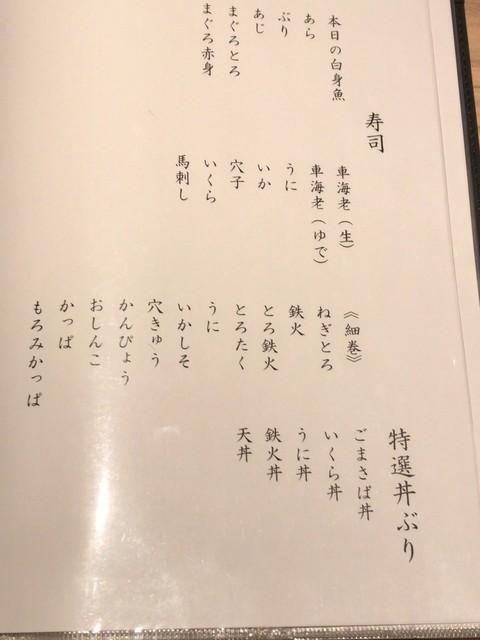 寿司
本日の白身魚
あら
ぶり
あじ
まぐろとろ
まぐろ赤身
車海老(生)
車海老(ゆで)
うに
いか
穴子
いくら
馬刺し
《細巻》
ねぎとろ
鉄火
とろ鉄火
とろたく
うに
いかしそ
穴きゅう
かんぴょう
おしんこ
かっぱ
もろみかっぱ
特選丼ぶり
ごまさば丼
いくら丼
うに丼
鉄火丼
天丼